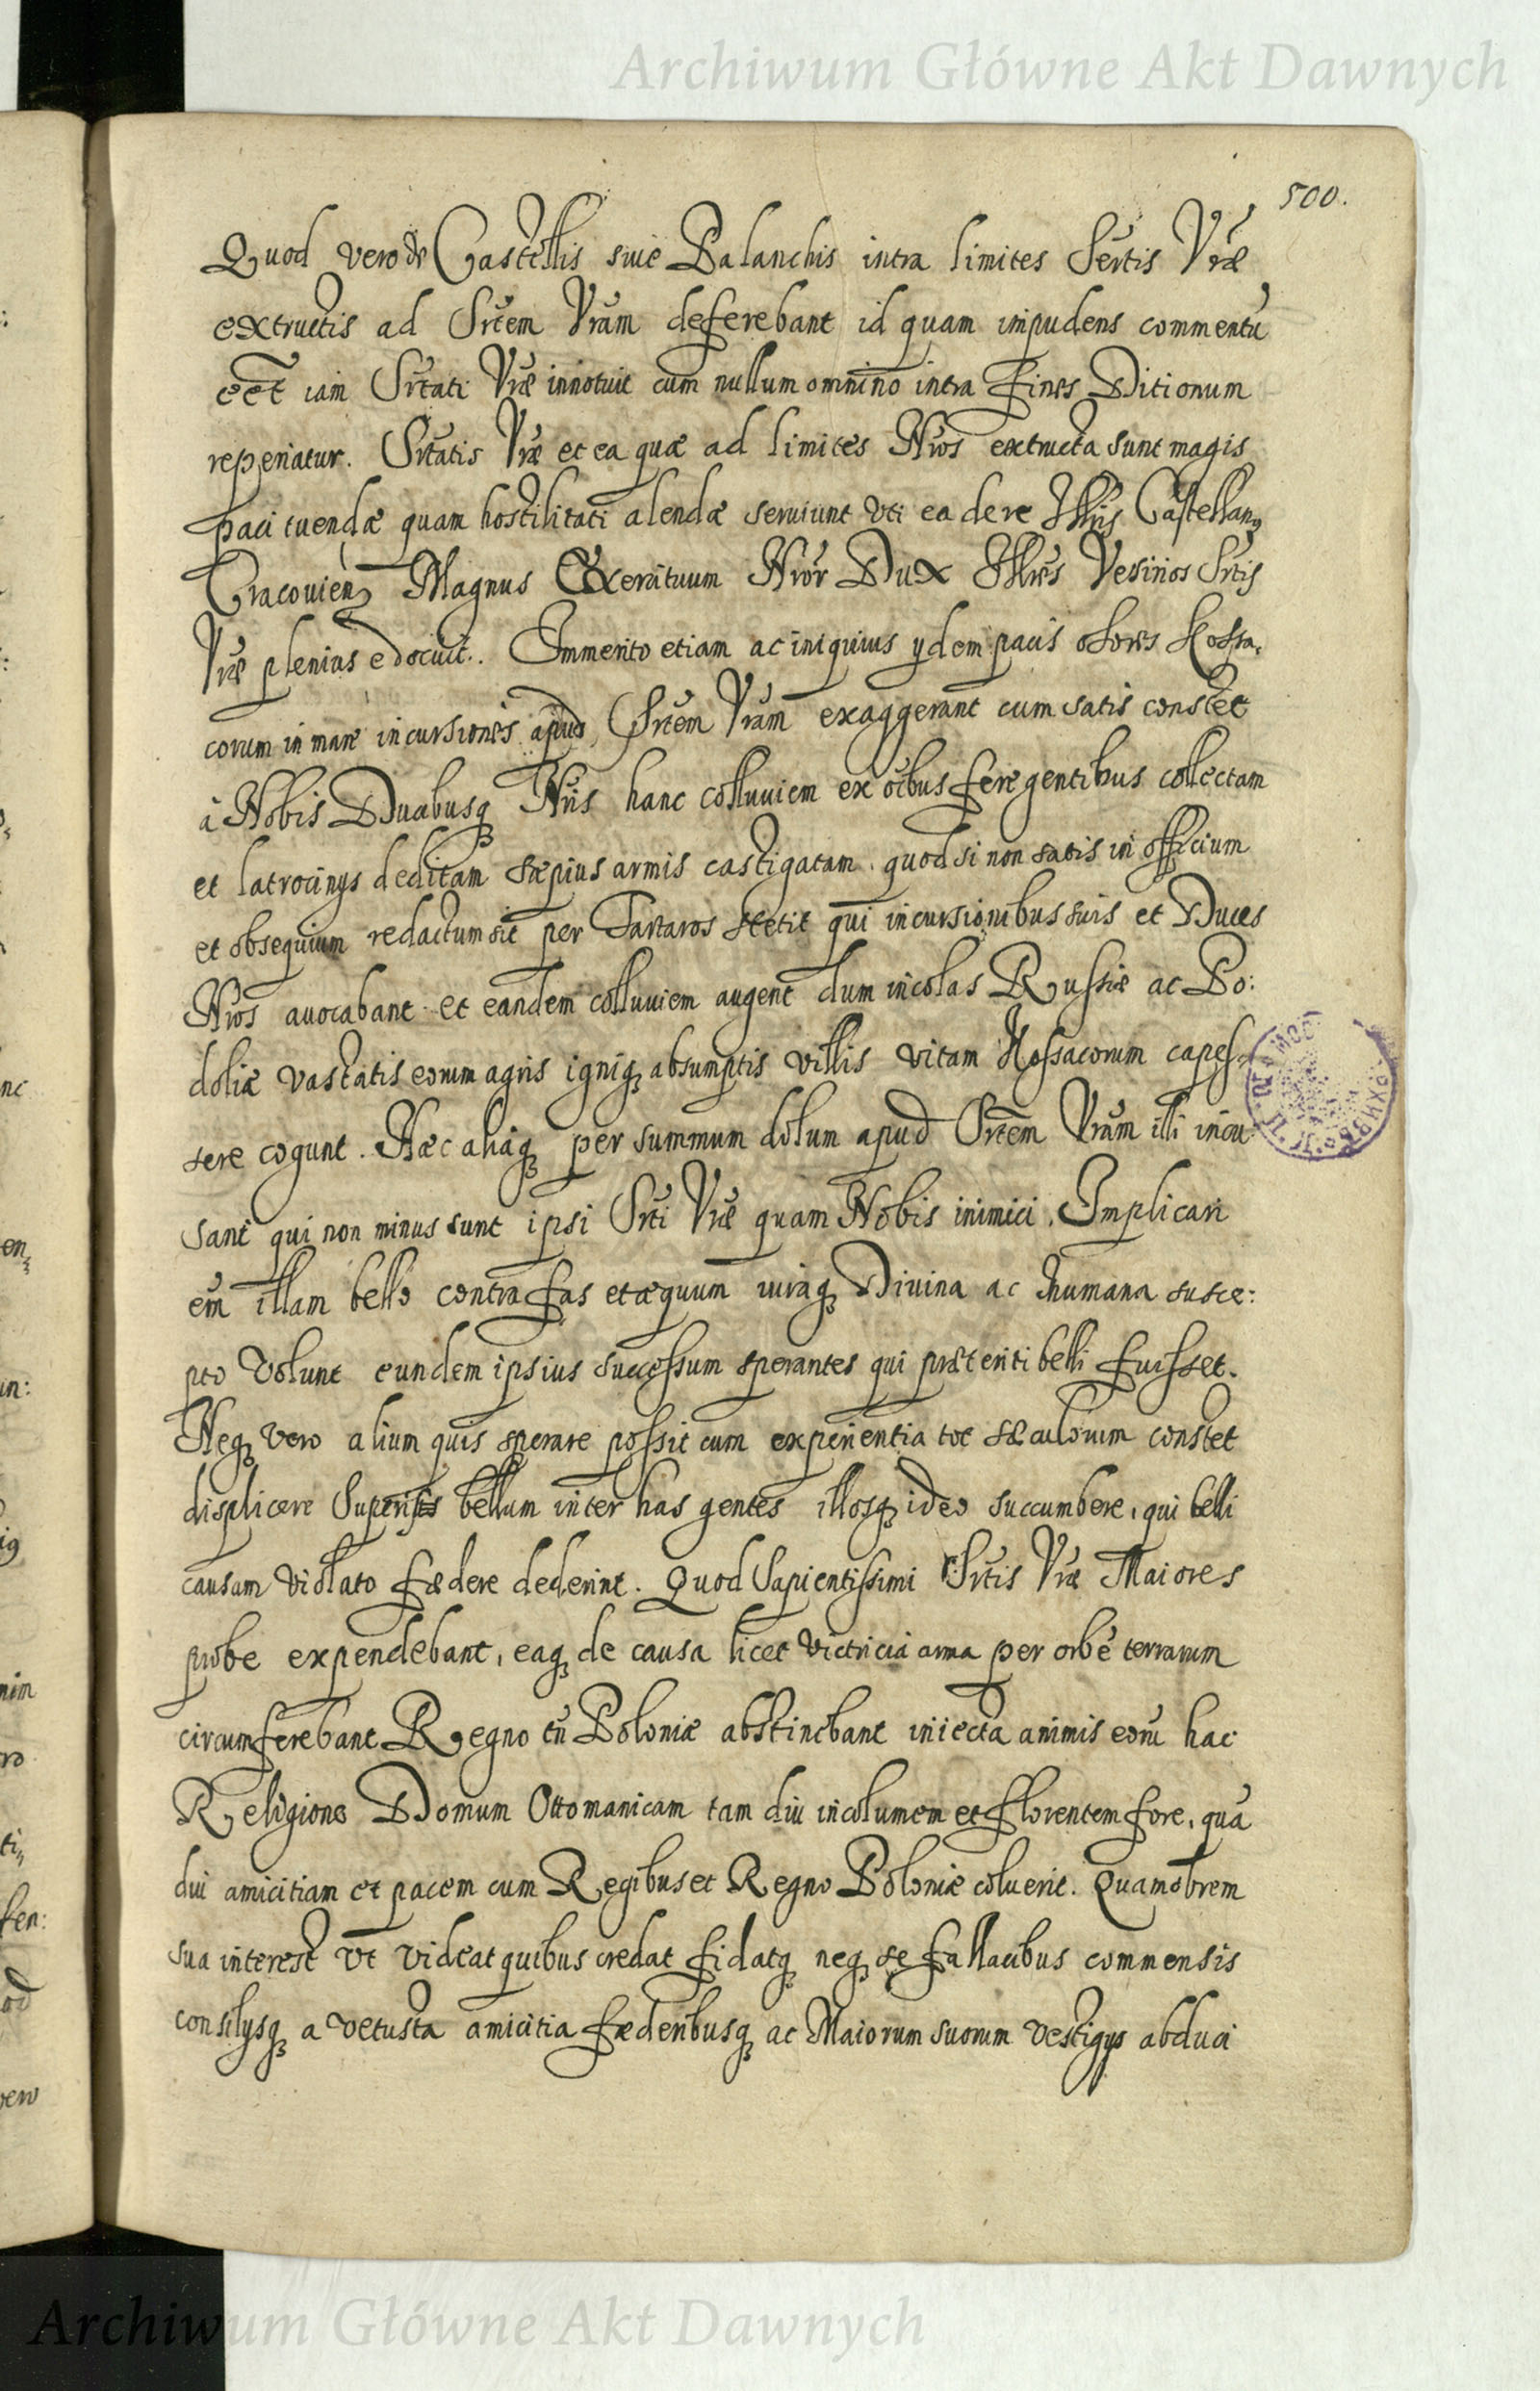 Archiwum Główne Akt Dawnych
500.
Quod vero de Castellis siue Palanchis intra limites Sertis Vræ
extructis ad Srtem Vram deferebant id quam impudens commentū
eēt iam Srtati Vræ innotuit cum nullum omnino intra fines Ditionum
reperiatur. Srtatis Vræ et ea quæ ad limites Nros extructa sunt magis
paci tuendæ quam hostilitati alendæ seruiunt vti ea de re Illris Castellanꝰ
Cracouien Magnus Exercituum Nror Dux Illres Vesirios Srtis
Vræ plenius edocuit. Immerito etiam ac iniquius ydem pacis osores Kossa,
corum in mare incursiones apud Srtem Vram exaggerant cum satis constet
à Nobis Duabusq Nris hanc colluuiem ex oībus fere gentibus collectam
et latrocinys deditam sæpius armis castigatam. quod si non satis in officium
et obsequium redactum sit per Tartaros stetit qui incursionibus suis et Duces
Nros auocabant et eandem colluuiem augent dum incolas Russiæ ac Po:
doliæ vastatis eorum agris igniq absumptis villis vitam Kossacorum capes-
sere cogunt. Hæc aliaq per summum dolum apud Srtem Vram illi incu
sant qui non minus sunt ipsi Srti Vræ quam Nobis inimici. Implicari
em illam bello contra fas et æquum iuraq Diuina ac humana susce:
pto volunt eundem ipsius successum sperantes qui præteriti belli fuisset.
Neq vero alium quis sperare possit cum experientia tot sæculorum constet
displicere Superis bellum inter has gentes illosq ideo succumbere, qui belli
causam violato fædere dederint. Quod Sapientissimi Srtis Vræ Maiores
probe expendebant, eaq de causa licet victricia arma per orbē terrarum
circumferebant Regno tn Poloniæ abstinebant iniecta animis eorū hac
Religione Domum Ottomanicam tam diu incolumem et florentem fore, quā
diu amicitiam et pacem cum Regibus et Regno Poloniæ coluerit. Quamobrem
sua interest vt videat quibus credat fidatq neq se fallacibus commensis
consilysq a vetusta amicitia fæderibusq ac Maiorum suorum vestigys abduci
Archiwum Główne Akt Dawnych